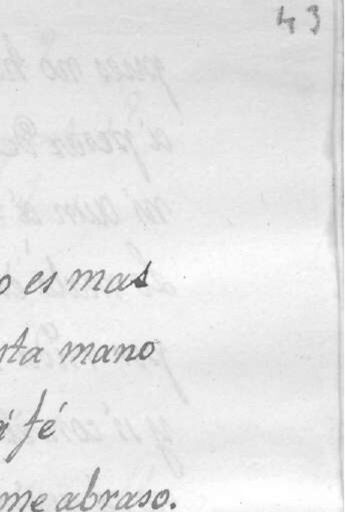 43
o es mas
sta mano
á fé
me abraso.